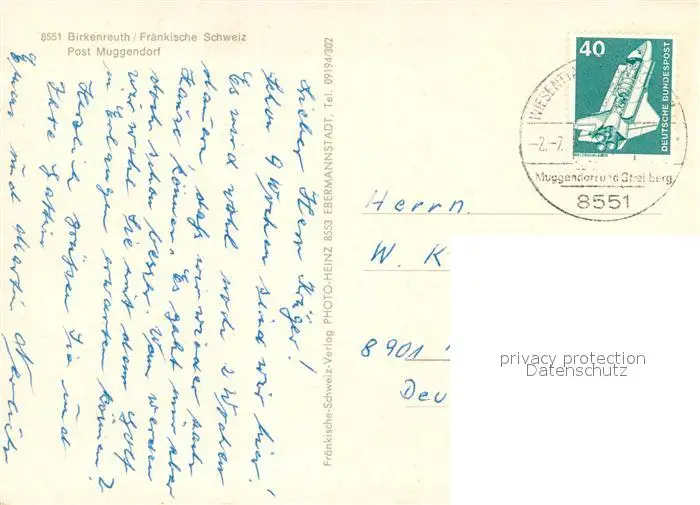 8551 Birkenreuth / Fränkische Schweiz
Post Muggendorf
Lieber Herr Krüger!
Schon 9 Wochen sind wir hier!
Es wird wohl noch 2 Wochen
dauern, daß wir wieder nach
Hause können. Es geht mir aber
doch schon besser. Wann werden
wir wohl Sie mit dem Golf
in Erlangen erwarten können?
Herzlich grüßen Sie und
Ihre Gattin
und Martin
Fränkische-Schweiz-Verlag PHOTO-HEINZ 8553 EBERMANNSTADT, Tel. 09194/302
40
DEUTSCHE BUNDESPOST
WIESENT
-2.-7.
Muggendorf und Streitberg
8551
Herrn
W. K
8901
Deu
privacy protection
Datenschutz